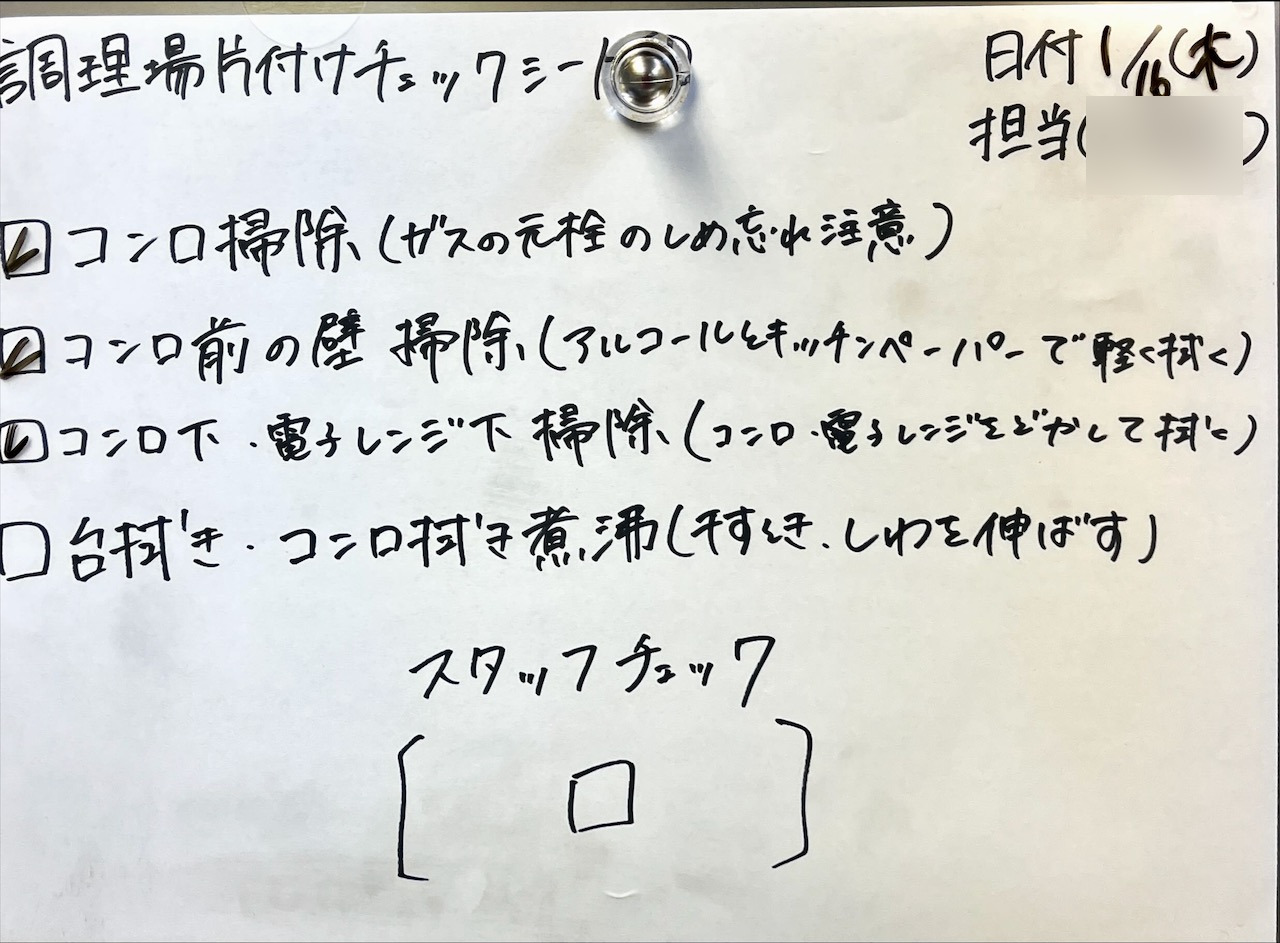 調理場片付けチェックシート
日付 1/16(木)
担当( )
☑ コンロ掃除(ガスの元栓のしめ忘れ注意)
☑ コンロ前の壁 掃除(アルコールとキッチンペーパーで軽く拭く)
☑ コンロ下・電子レンジ下 掃除(コンロ・電子レンジをどかして拭く)
☐ 台拭き・コンロ拭き煮沸(干すとき、しわを伸ばす)
スタッフチェック
[ ☐ ]